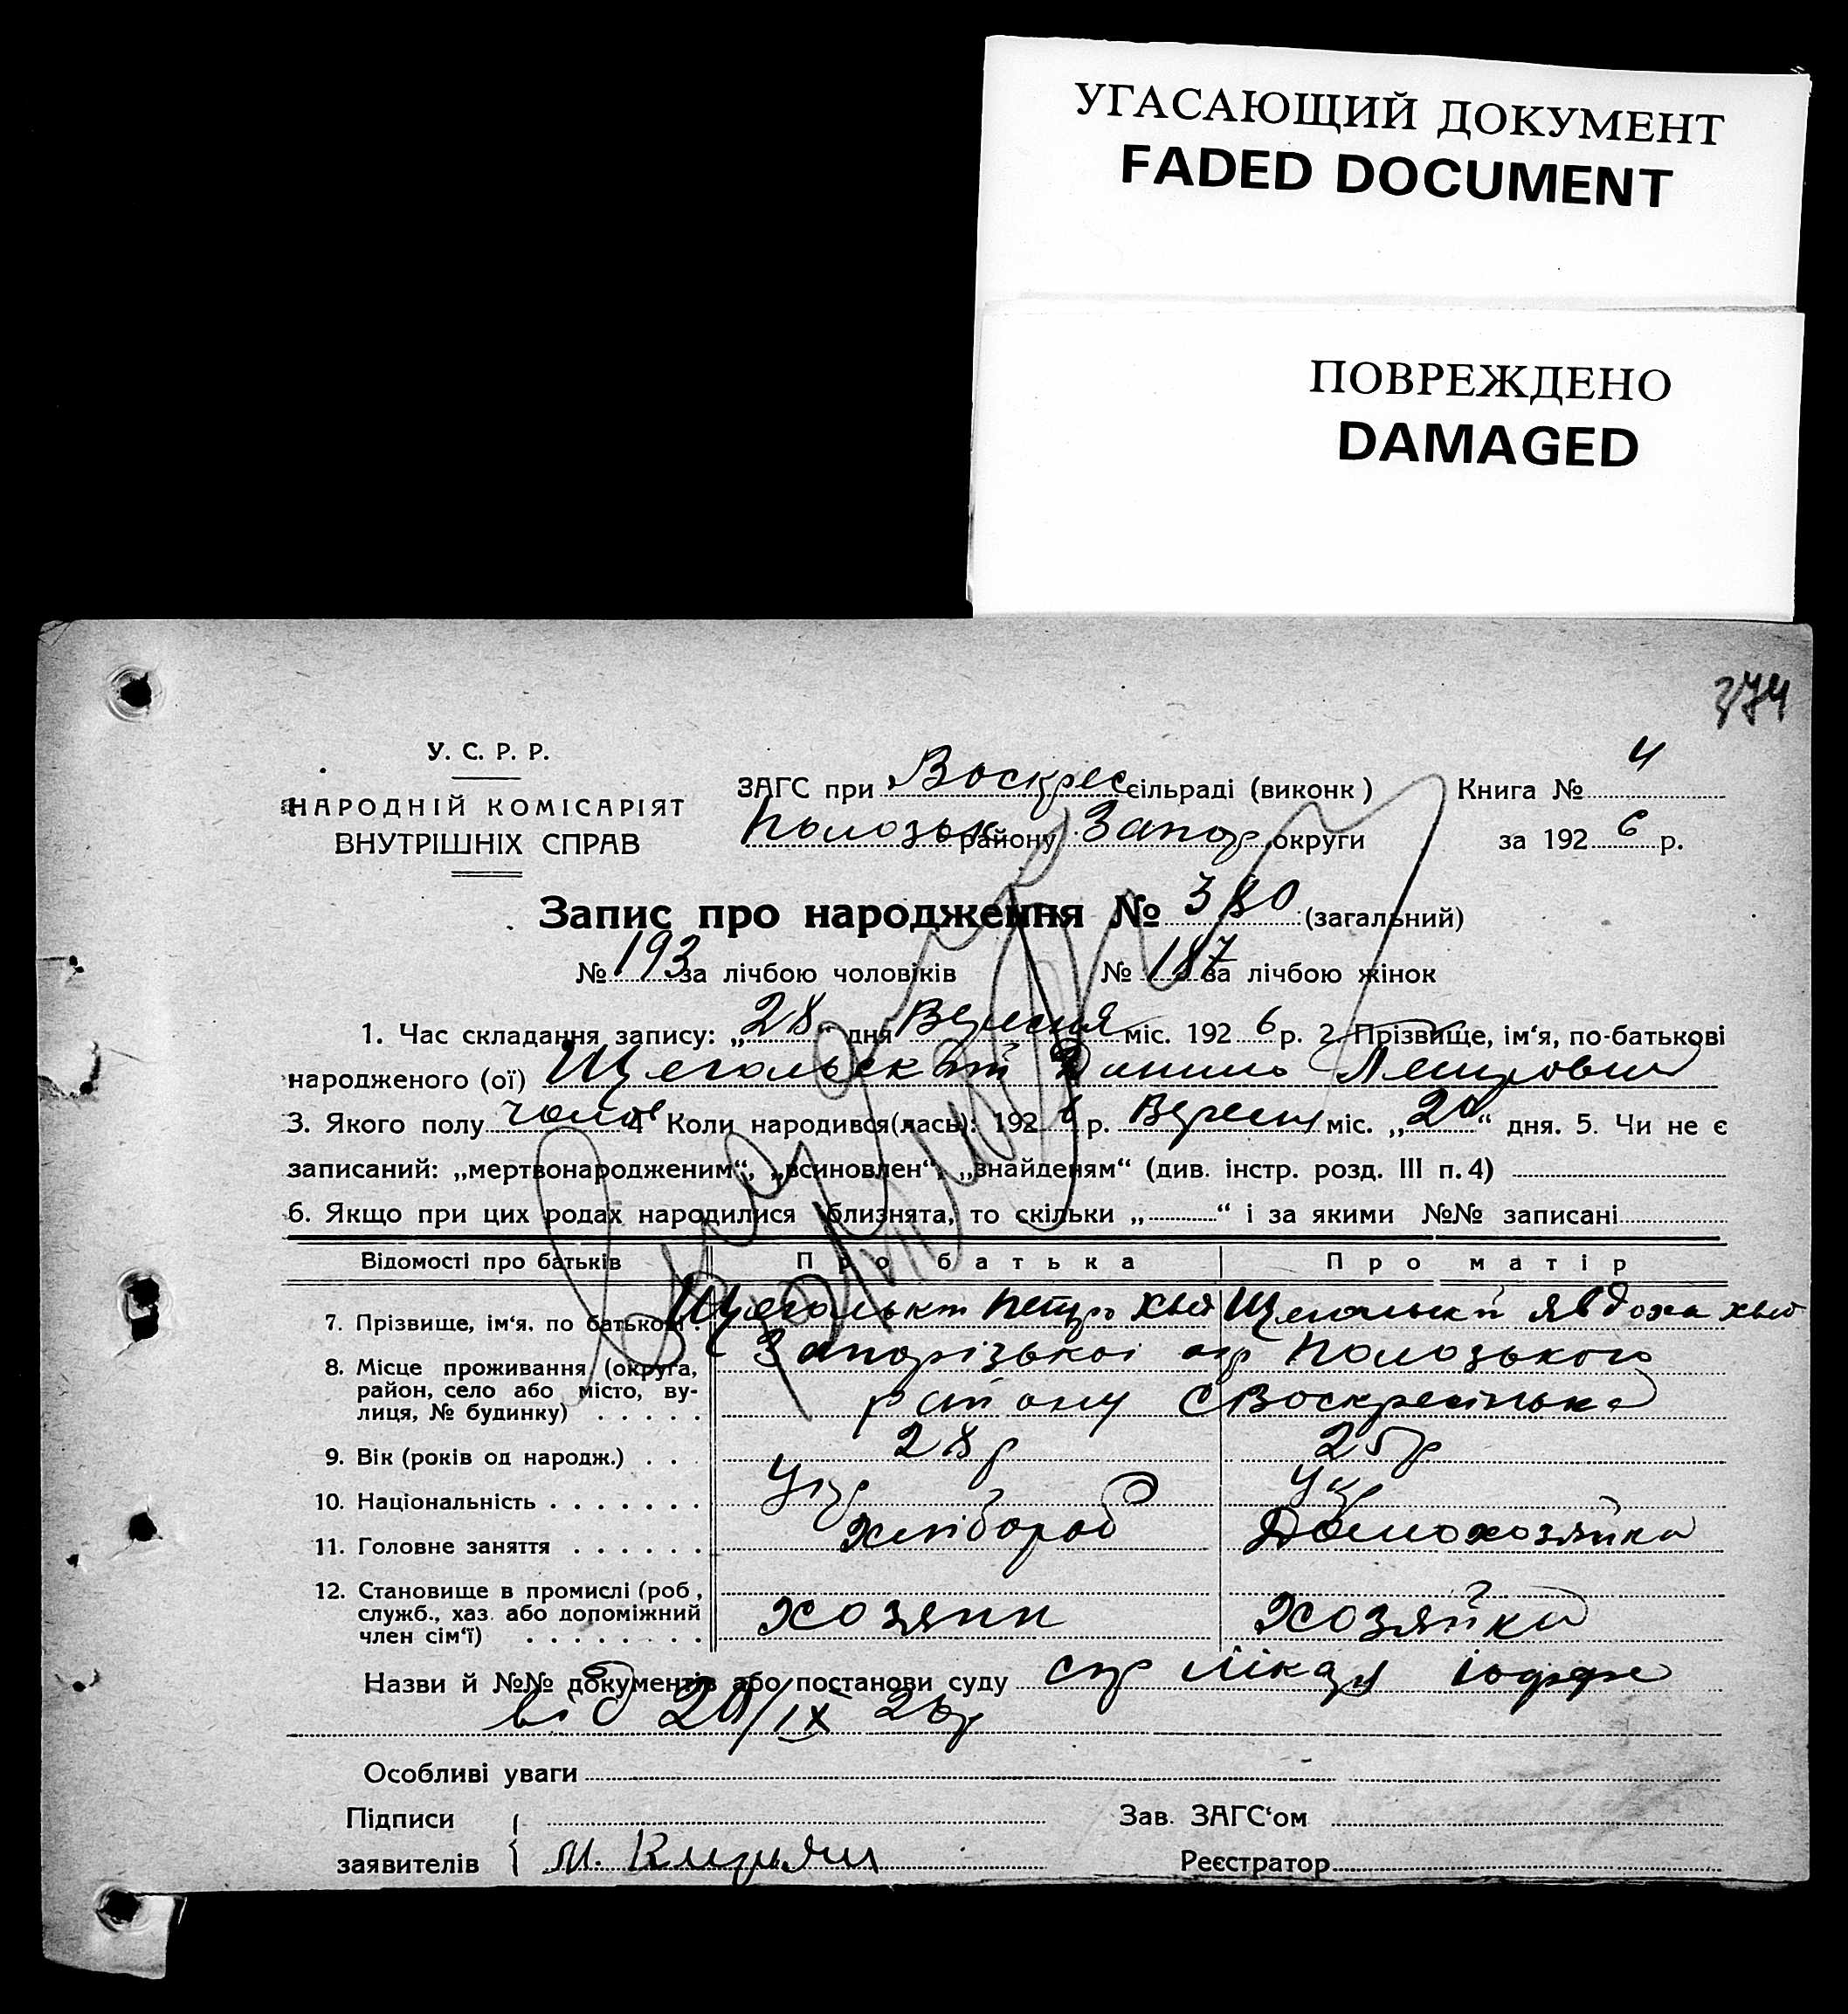 УГАСАЮЩИЙ ДОКУМЕНТ
FADED DOCUMENT
ПОВРЕЖДЕНО
DAMAGED
374
У. С. Р. Р.
НАРОДНІЙ КОМІСАРІЯТ
ВНУТРІШНІХ СПРАВ
ЗАГС при Воскрес сільраді (виконк)
Книга № 4
Полозьк району Запор округи
за 1926 р.
Запис про народження № 380 (загальний)
№ 193 за лічбою чоловіків № 187 за лічбою жінок
1. Час складання запису: „28“ дня Вересня міс. 1926 р. 2. Прізвище, ім'я, по-батькові
народженого (ої) Щегольский Данило Петрович
3. Якого полу чолов 4 Коли народився(лась): 1926 р. Вересня міс. „20“ дня. 5. Чи не є
записаний: „мертвонародженим“, „всиновлен“, „знайденям“ (див. інстр. розд. III п. 4)
6. Якщо при цих родах народилися близнята, то скільки „ “ і за якими №№ записані
Відомості про батьків Про батька Про матір
7. Прізвище, ім'я, по батькові. Щегольский Петро Щегольский Явдоха
8. Місце проживання (округа, район, село або місто, вулиця, № будинку) Запорізької окр Полозького
району с Воскресінька
9. Вік (років од народж.) 28 р 25 р
10. Національність Укр Укр
11. Головне заняття хлібороб Домохозяйка
12. Становище в промислі (роб, служб., хаз. або допоміжний член сім'ї) хозяин хозяйка
Назви й №№ документів або постанови суду спр лікаря Іоффе
від 20/IX 26 р
Особливі уваги
Підписи
заявителів { М.
Зав. ЗАГС'ом
Реєстратор